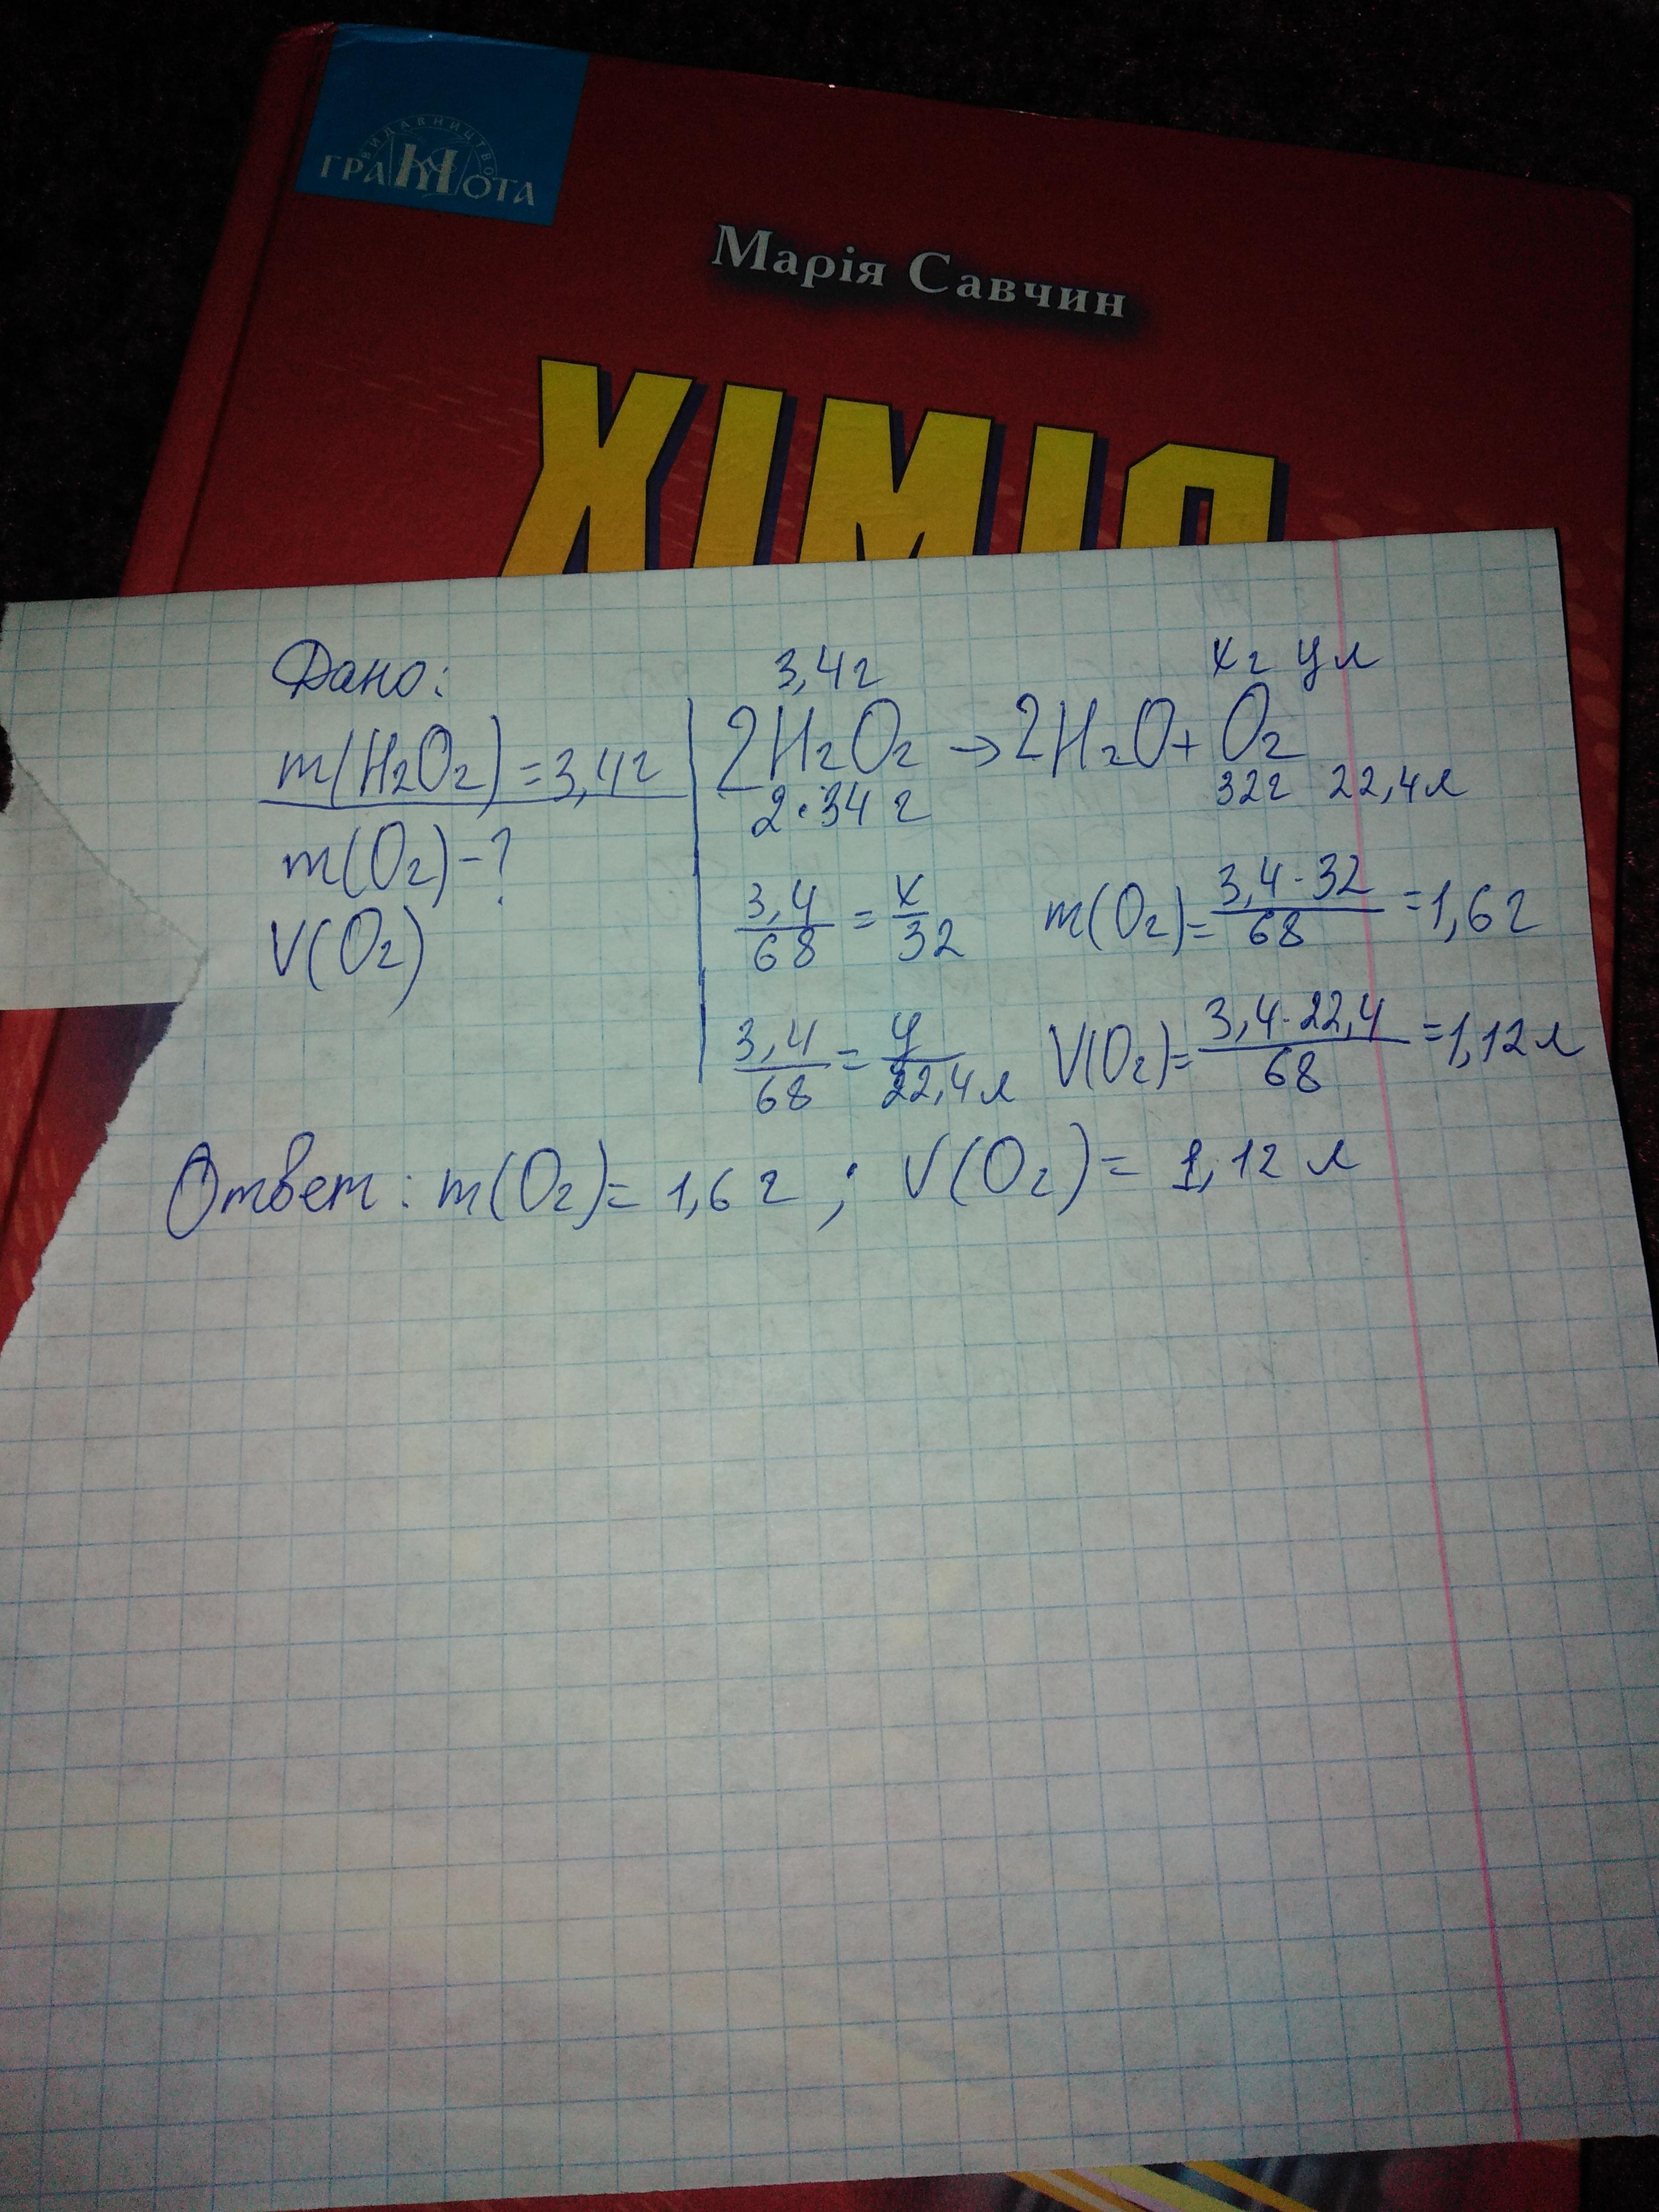 ВИДАВНИЦТВО
ГРАМОТА
Марія Савчин
ХІМІЯ
Дано:
m(H₂O₂)=3,4г
m(O₂)-?
V(O₂)
3,4г хг ул
2H₂O₂ → 2H₂O + O₂
2·34 г 32г 22,4л
3,4/68 = х/32 m(O₂)= 3,4·32/68 =1,6г
3,4/68 = у/22,4л V(O₂)= 3,4·22,4/68 =1,12л
Ответ: m(O₂)= 1,6 г ; V(O₂)= 1,12 л